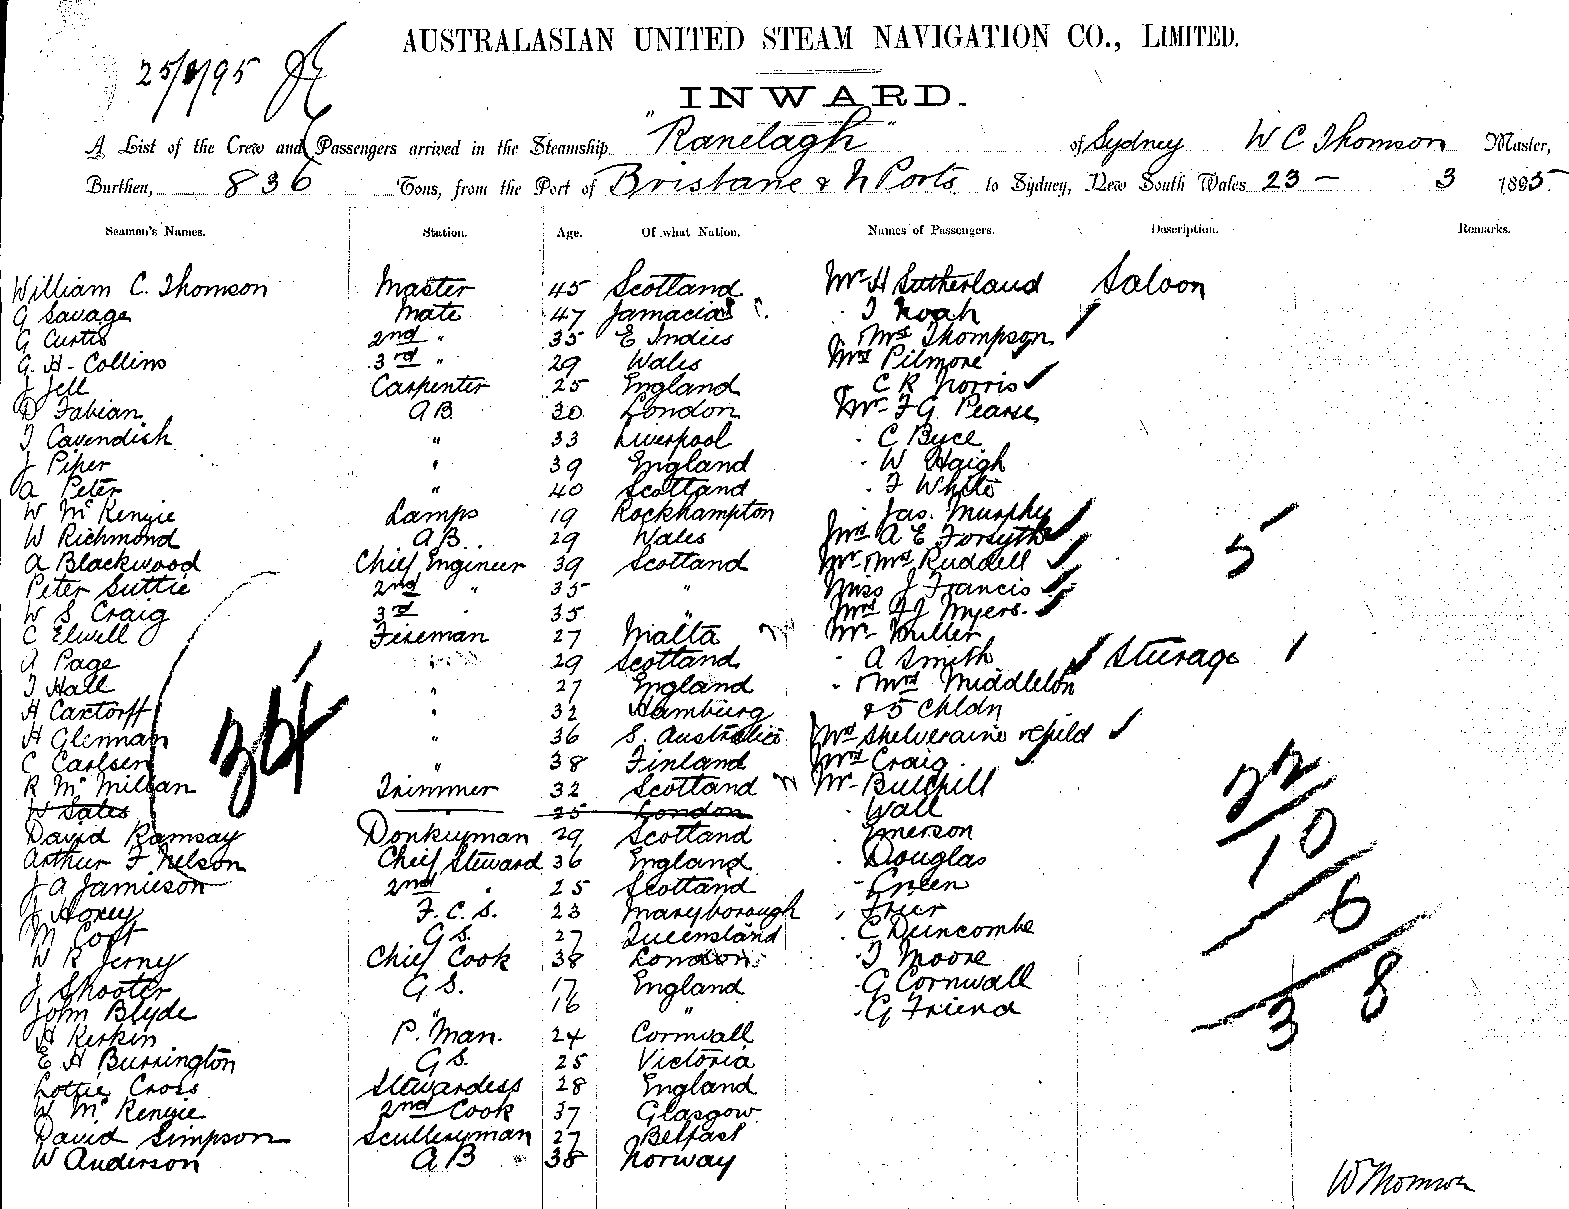 AUSTRALASIAN UNITED STEAM NAVIGATION CO., LIMITED.
25/3/95
INWARD.
A List of the Crew and Passengers arrived in the Steamship "Ranelagh" of Sydney W C Thomson Master,
Burthen, 836 Tons, from the Port of Brisbane & N Ports to Sydney, New South Wales 23 - 3 1895
Seamen's Names. Station. Age. Of what Nation. Names of Passengers. Description. Remarks.
William C. Thomson Master 45 Scotland Mr H Sutherland Saloon
G Savage Mate 47 Jamacia T Noah
G Curtis 2nd " 35 E Indies " Mrs Thompson
G. H. Collins 3rd " 29 Wales Mrs Pilmore
J Jell Carpenter 25 England " C R Norris
D Fabian AB 30 London Mr F G Pearse
T Cavendish " 33 Liverpool " C Byce
J Piper " 39 England " W Haigh
A Peter " 40 Scotland " F White
W McKenzie Lamps 19 Rockhampton " Jas. Murphy
W Richmond AB 29 Wales Mrs A E Forsythe 5
A Blackwood Chief Engineer 39 Scotland Mr Mrs Ruddell
Peter Suttie 2nd " 35 " Miss J Francis
W S Craig 3rd " 35 " Mrs Myers
C Elwell Fireman 27 Malta Mr Miller
A Page 29 Scotland " A Smith Sturage 1
T Hall " 27 England " Mrs Middleton
H Cartorff " 32 Hamburg & 5 Chldn
H Glennan " 36 S. Australia Mrs Skelveraine & child
C Carlsen " 38 Finland Mrs Craig
R McMillan Trimmer 32 Scotland Mr Bulchill
H Sales " 25 London " Wall
David Ramsay Donkeyman 29 Scotland " Emerson
Arthur F Nelson Chief Steward 36 England " Douglas
J A Jamieson 2nd " 25 Scotland " Green
J Horey F. C. S. 23 Maryborough " Frier
M Coft G S. 27 Queensland " C Duncombe
W R Jerny Chief Cook 38 London " T Moore
J Shooter G S. 17 England " G Cornwall
John Blyde " 16 " " G Friend
H Kerkin P. Man. 24 Cornwall
E H Burrington G S. 25 Victoria
Lottie Cross Stewardess 28 England
W McKenzie 2nd Cook 37 Glasgow
David Simpson Sculleryman 27 Belfast
W Anderson AB 38 Norway
22
10
6
38
W Thomson